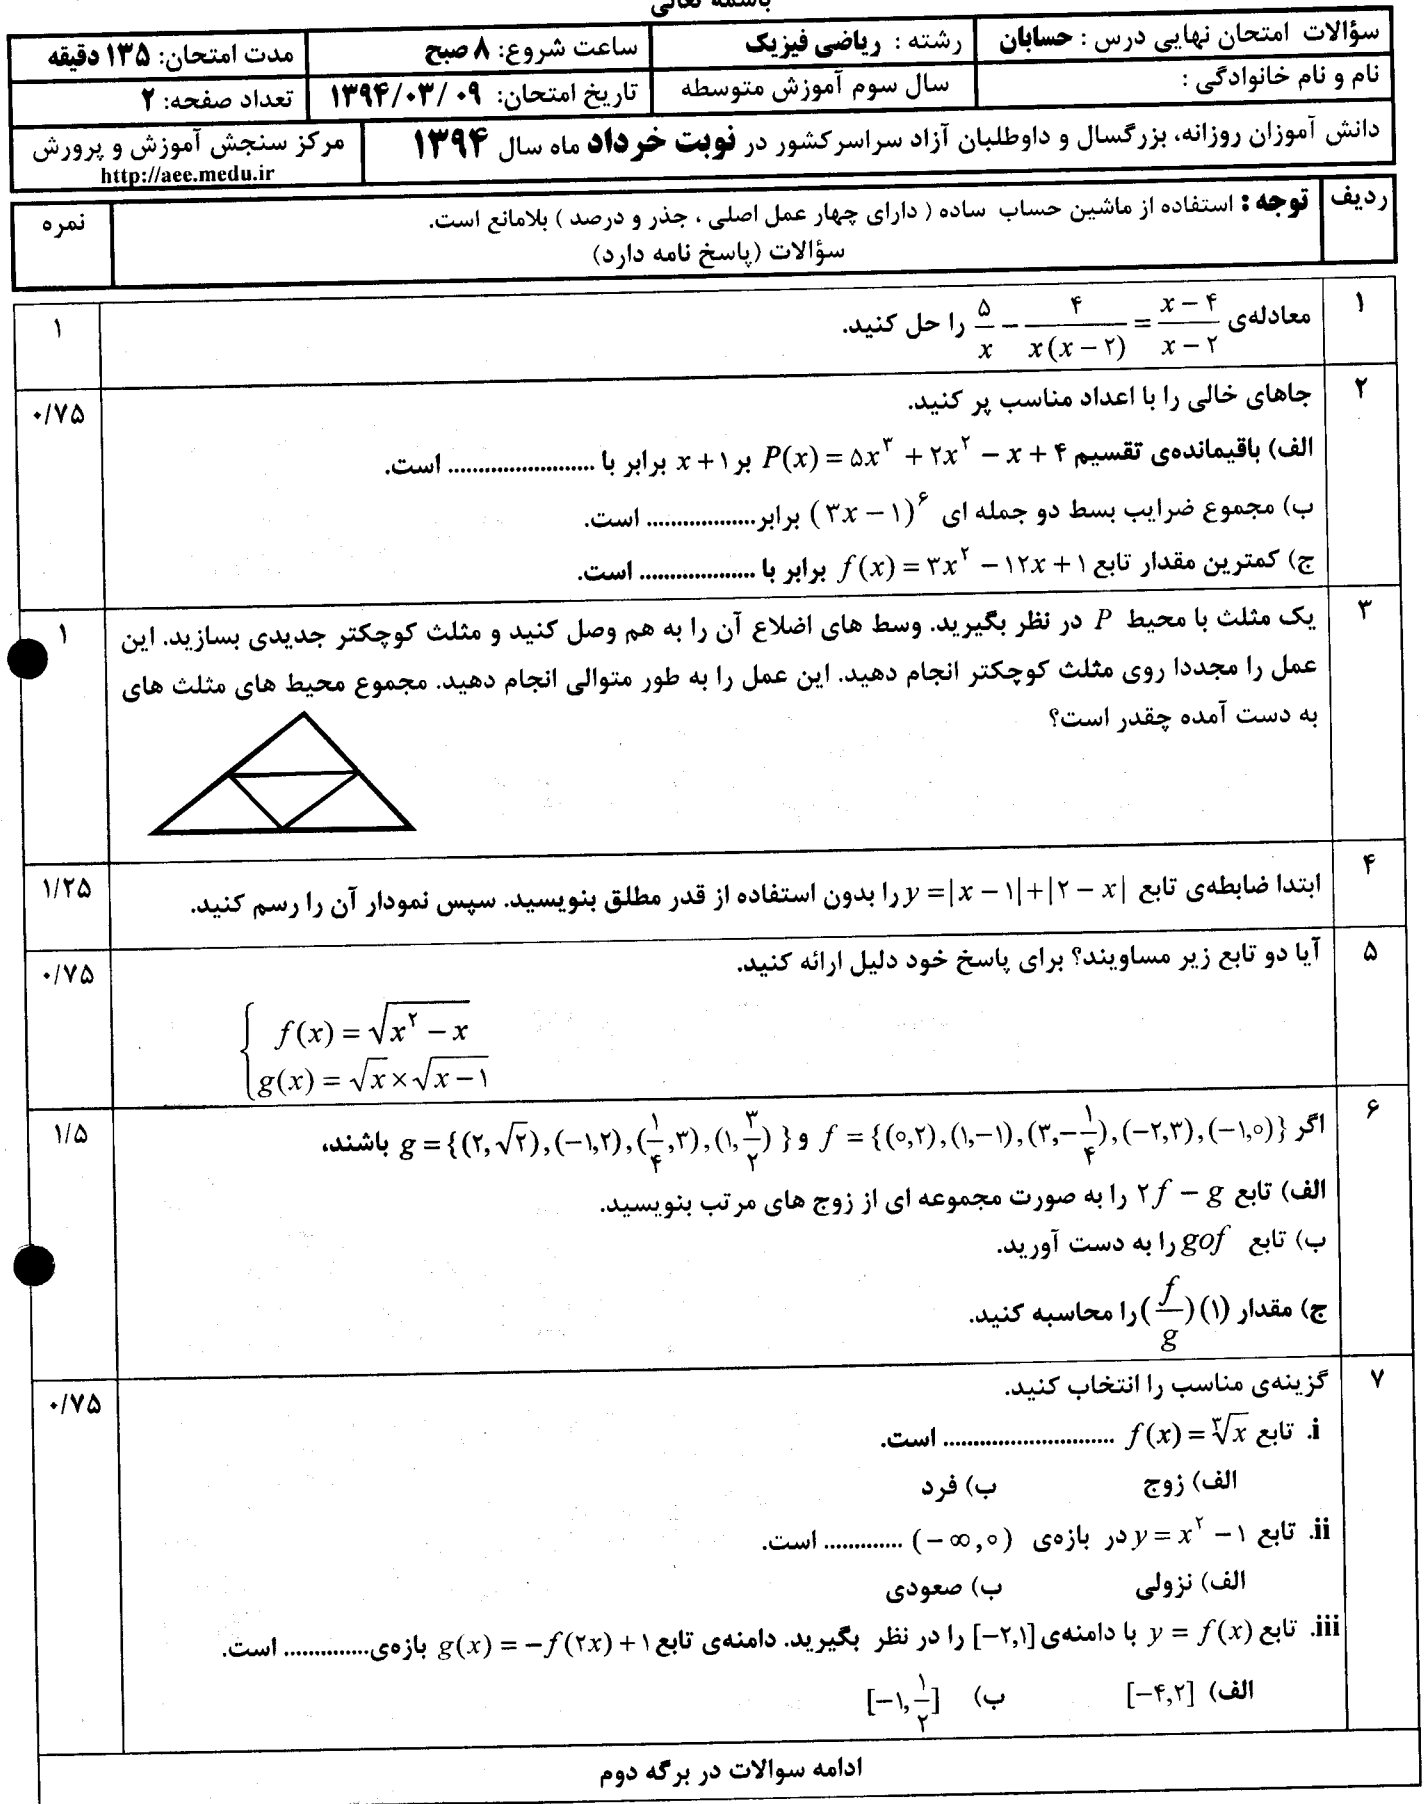 باسمه تعالی
سؤالات امتحان نهایی درس : حسابان
رشته : ریاضی فیزیک
ساعت شروع: ۸ صبح
مدت امتحان: ۱۳۵ دقیقه
نام و نام خانوادگی :
سال سوم آموزش متوسطه
تاریخ امتحان: ۰۹ /۱۳۹۴/۰۳
تعداد صفحه: ۲
دانش آموزان روزانه، بزرگسال و داوطلبان آزاد سراسرکشور در نوبت خرداد ماه سال ۱۳۹۴
مرکز سنجش آموزش و پرورش
http://aee.medu.ir
ردیف
توجه : استفاده از ماشین حساب ساده ( دارای چهار عمل اصلی ، جذر و درصد ) بلامانع است.
سؤالات (پاسخ نامه دارد)
نمره
۱
معادله‌ی ۵/x − ۴/x(x − ۲) = x − ۴/x − ۲ را حل کنید.
۱
۲
جاهای خالی را با اعداد مناسب پر کنید.
۰/۷۵
الف) باقیمانده‌ی تقسیم P(x) = ۵x³ + ۲x² − x + ۴ بر x + ۱ برابر با ........................ است.
ب) مجموع ضرایب بسط دو جمله ای (۳x − ۱)⁶ برابر.................. است.
ج) کمترین مقدار تابع f(x) = ۳x² − ۱۲x + ۱ برابر با ................... است.
۳
یک مثلث با محیط P در نظر بگیرید. وسط های اضلاع آن را به هم وصل کنید و مثلث کوچکتر جدیدی بسازید. این
۱
عمل را مجددا روی مثلث کوچکتر انجام دهید. این عمل را به طور متوالی انجام دهید. مجموع محیط های مثلث های
به دست آمده چقدر است؟
۴
ابتدا ضابطه‌ی تابع y = |x − ۱| + |۲ − x| را بدون استفاده از قدر مطلق بنویسید. سپس نمودار آن را رسم کنید.
۱/۲۵
۵
آیا دو تابع زیر مساویند؟ برای پاسخ خود دلیل ارائه کنید.
۰/۷۵
f(x) = √(x² − x)
g(x) = √x × √(x − ۱)
۶
اگر f = {(۰,۲),(۱,−۱),(۳,−۱/۴),(−۲,۳),(−۱,۰)} و g = {(۲,√۲),(−۱,۲),(۱/۴,۳),(۱,۳/۲)} باشند،
۱/۵
الف) تابع ۲f − g را به صورت مجموعه ای از زوج های مرتب بنویسید.
ب) تابع gof را به دست آورید.
ج) مقدار (f/g)(۱) را محاسبه کنید.
۷
گزینه‌ی مناسب را انتخاب کنید.
۰/۷۵
i. تابع f(x) = ∛x ............................ است.
الف) زوج ب) فرد
ii. تابع y = x² − ۱ در بازه‌ی (−∞,۰) ............. است.
الف) نزولی ب) صعودی
iii. تابع y = f(x) با دامنه‌ی [−۲,۱] را در نظر بگیرید. دامنه‌ی تابع g(x) = −f(۲x) + ۱ بازه‌ی.............. است.
الف) [−۴,۲] ب) [−۱,۱/۲]
ادامه سوالات در برگه دوم